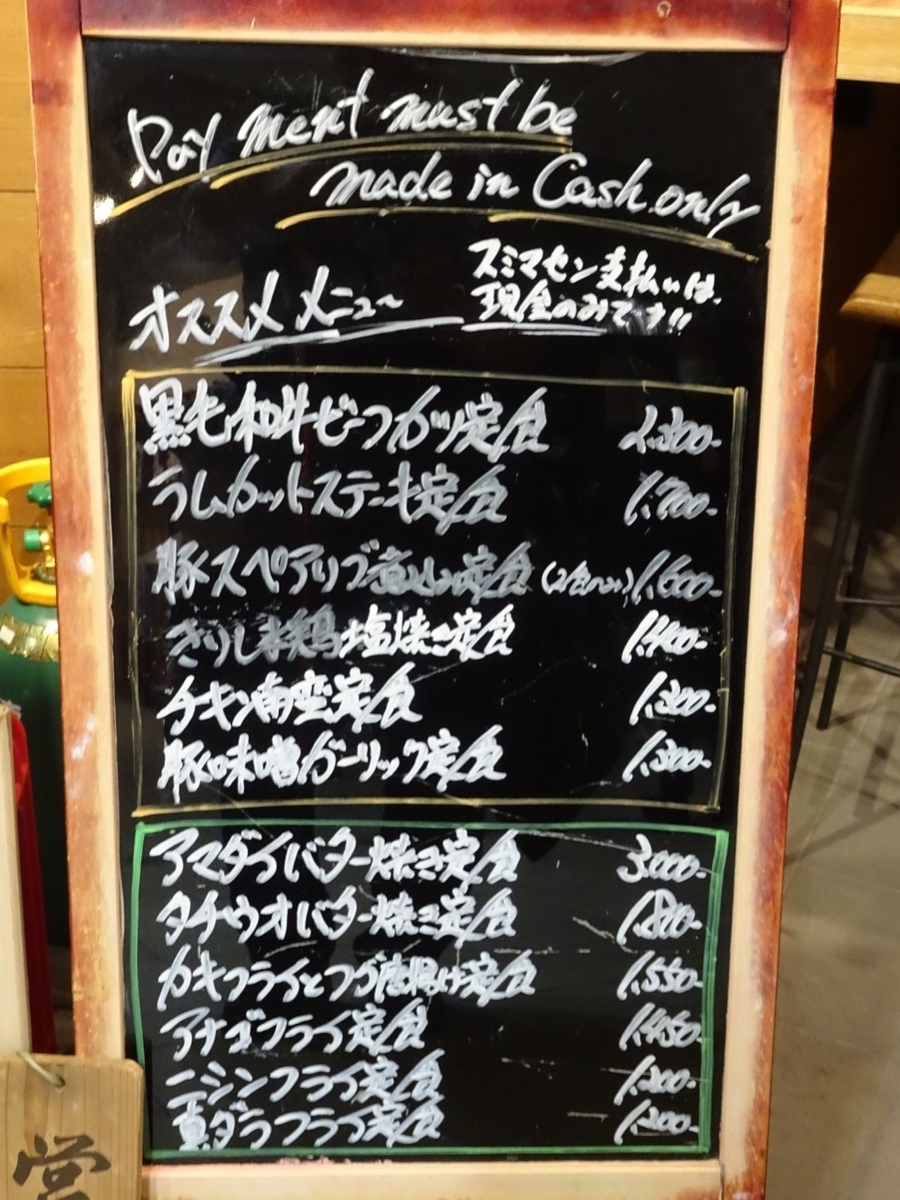 Payment must be
made in Cash only
スミマセン支払いは、
現金のみです!!
オススメメニュー
黒毛和牛ビーフカツ定食 2.300-
ラムカットステーキ定食 1.700-
豚スペアリブ煮込み定食 (2食のみ) 1.600-
きりしま鶏塩焼き定食 1.400-
チキン南蛮定食 1.300-
豚味噌ガーリック定食 1.300-
アマダイバター焼き定食 3.000-
タチウオバター焼き定食 1.800-
カキフライとフグ唐揚げ定食 1.550-
アナゴフライ定食 1.450-
ニシンフライ定食 1.200-
真ダラフライ定食 1.200-
営